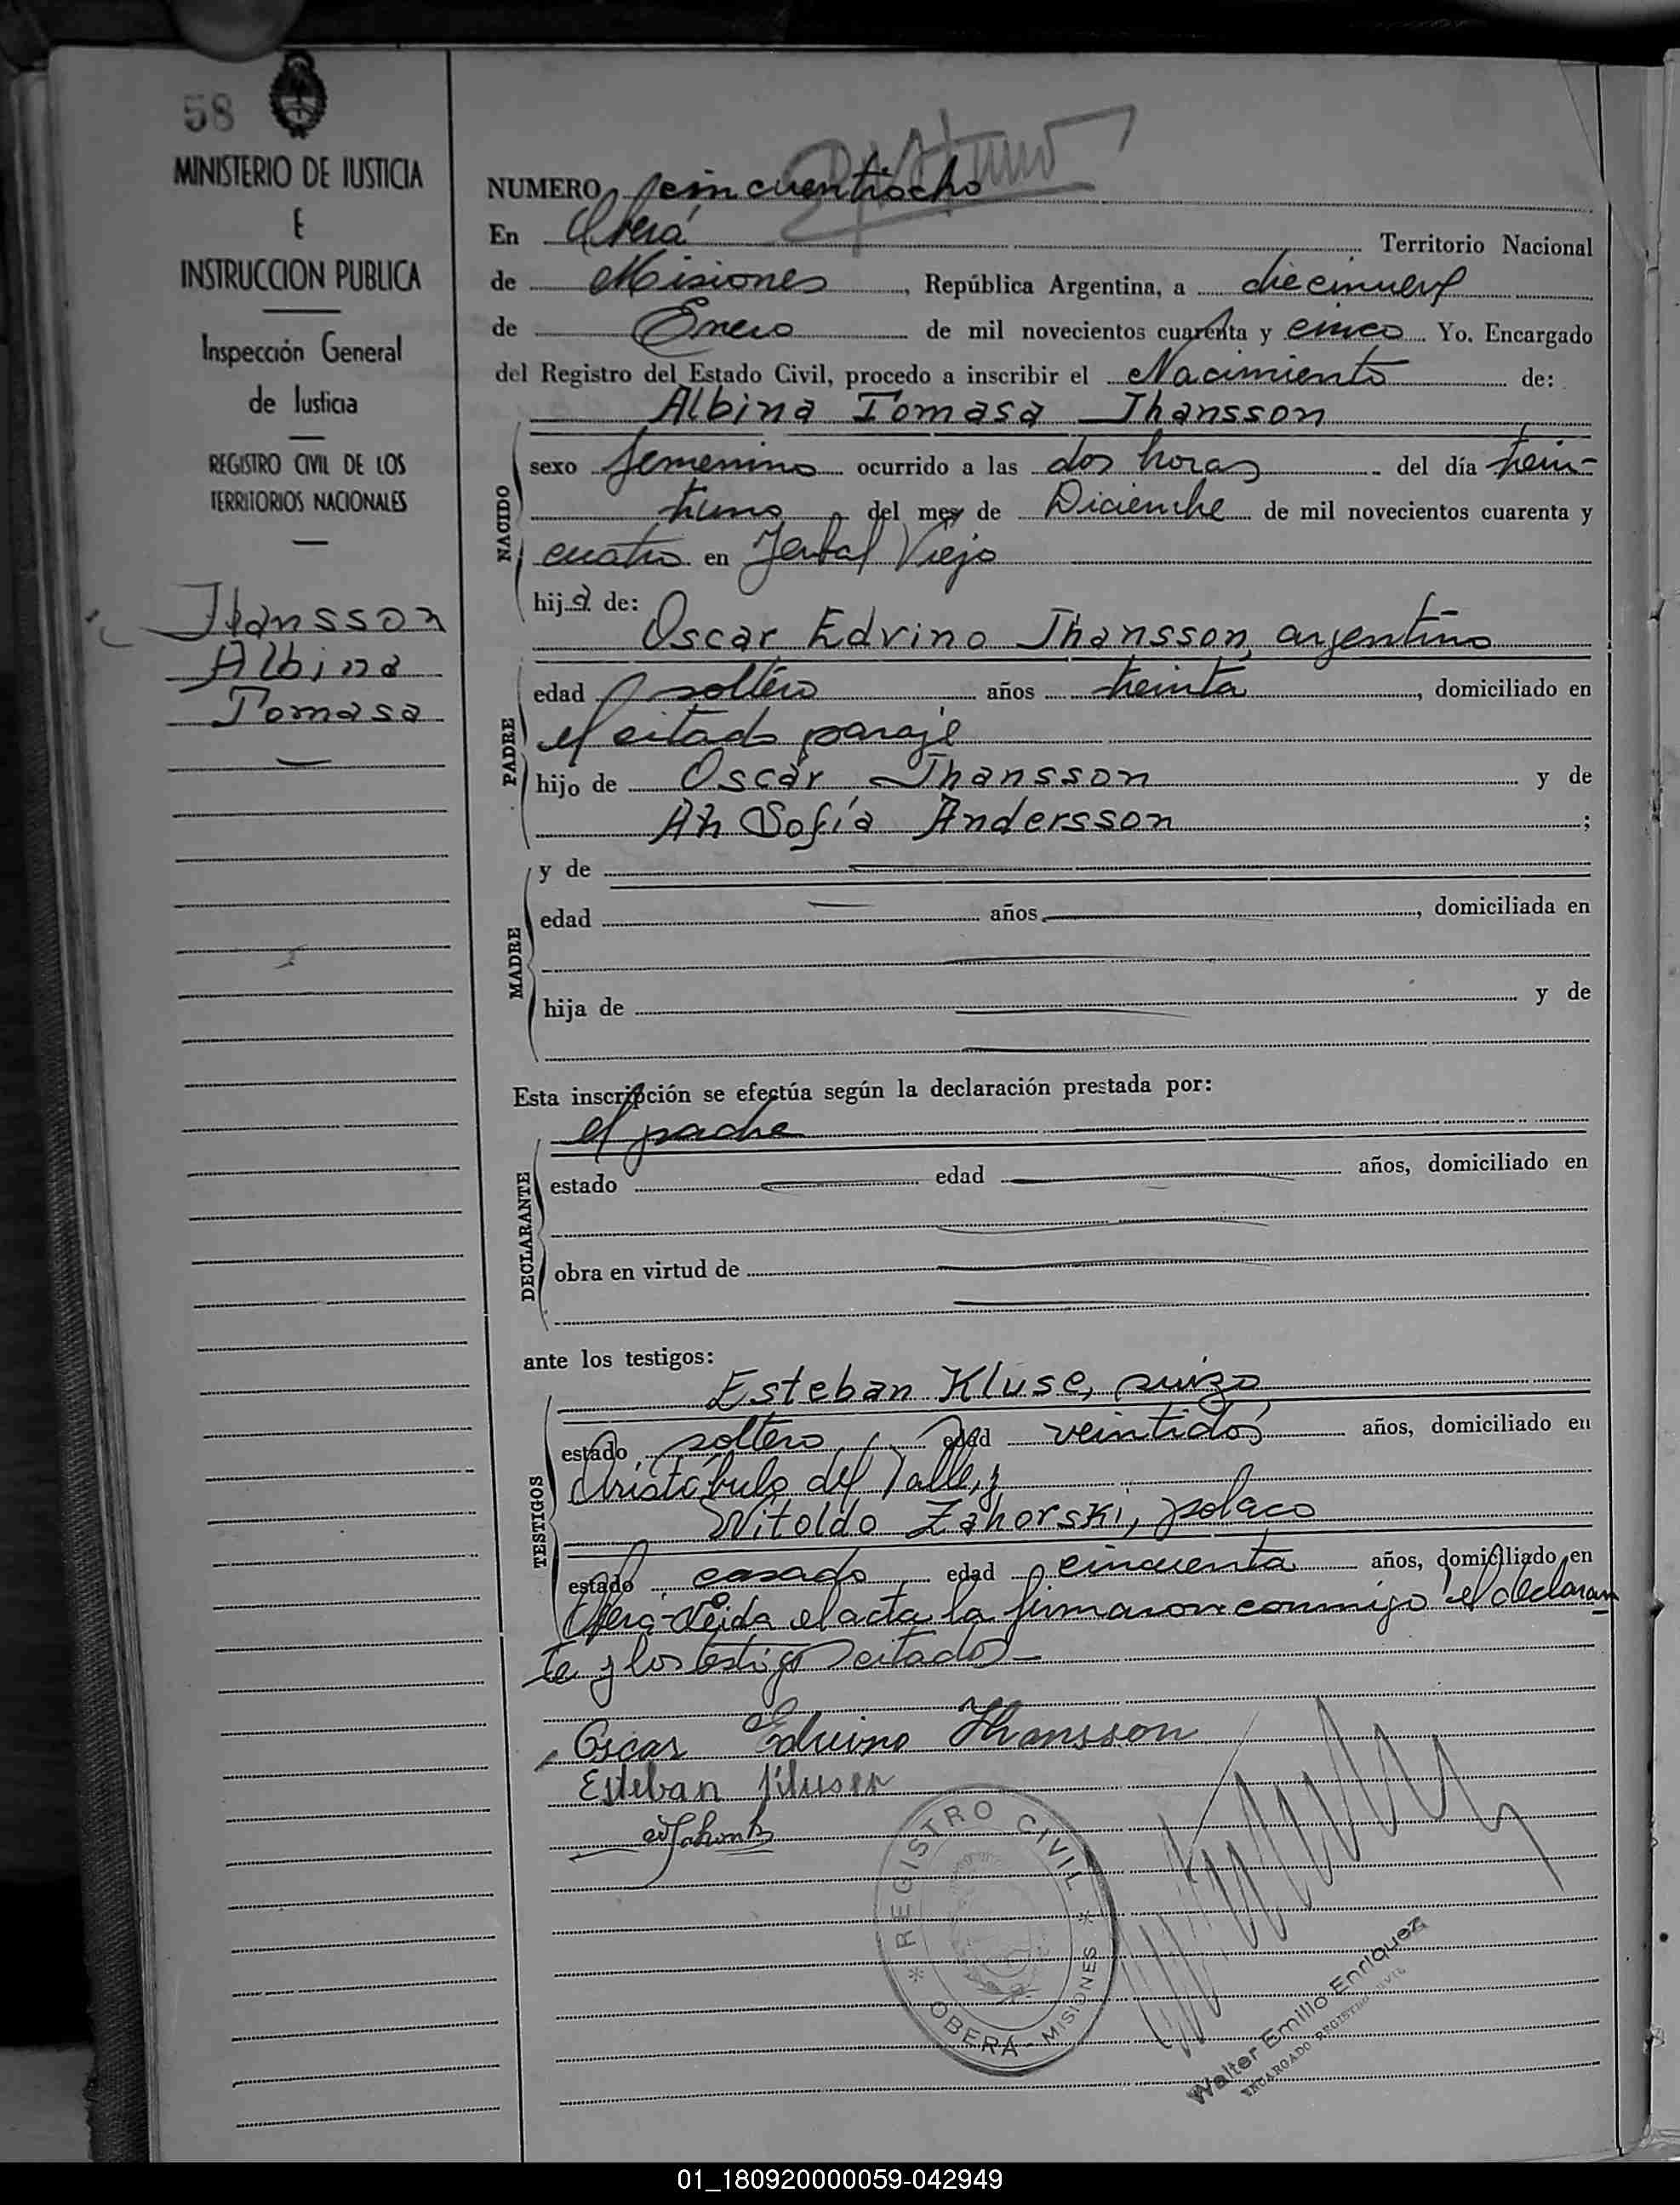 58
MINISTERIO DE JUSTICIA
E
INSTRUCCION PUBLICA
Inspección General
de Justicia
REGISTRO CIVIL DE LOS
TERRITORIOS NACIONALES
Jhansson
Albina
Tomasa
NUMERO cincuentiocho
En Oberá Territorio Nacional
de Misiones, República Argentina, a diecinueve
de Enero de mil novecientos cuarenta y cinco. Yo, Encargado
del Registro del Estado Civil, procedo a inscribir el Nacimiento de:
Albina Tomasa Jhansson
NACIDO
sexo femenino ocurrido a las dos horas del día trein-
tiuno del mes de Diciembre de mil novecientos cuarenta y
cuatro en Yerbal Viejo
hija de:
Oscar Edvino Jhansson, argentino
PADRE
edad soltero años treinta, domiciliado en
el citado paraje
hijo de Oscar Jhansson y de
An Sofía Andersson;
MADRE
y de
edad años, domiciliada en
hija de y de
Esta inscripción se efectúa según la declaración prestada por:
el padre
DECLARANTE
estado edad años, domiciliado en
obra en virtud de
ante los testigos:
TESTIGOS
Esteban Kluse, suizo
estado soltero edad veintidós años, domiciliado en
Aristóbulo del Valle, y
Witoldo Zahorski, polaco
estado casado edad cincuenta años, domiciliado en
Oberá-Leida el acta la firmaron conmigo el declaran
te y los testigos citados-
Oscar Edvino Jhansson
Esteban
REGISTRO CIVIL
OBERÁ - MISIONES
Walter Emilio Enriquez
ENCARGADO REGISTRO CIVIL
01_180920000059-042949